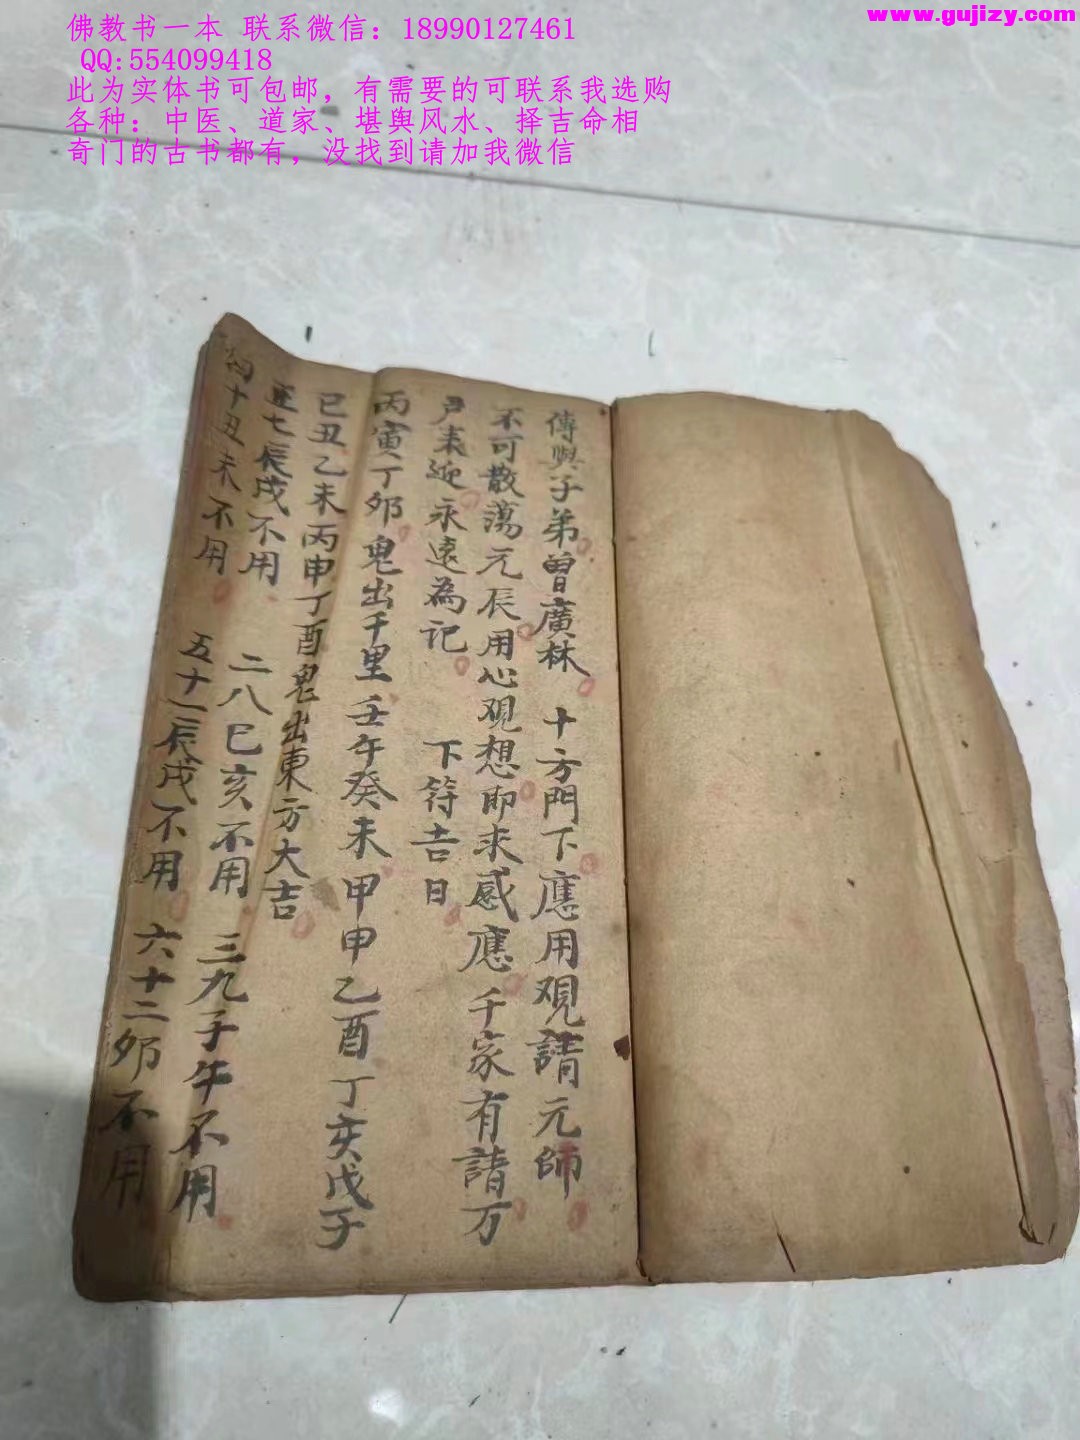 佛教书一本 联系微信：18990127461
QQ:554099418
此为实体书可包邮，有需要的可联系我选购
各种：中医、道家、堪舆风水、择吉命相
奇门的古书都有，没找到请加我微信
www.gujizy.com
傳與子弟曾廣林 十方門下應用观請元師
不可散蕩元辰用心观想即求感應千家有請万
戶來迎永遠為記 下符吉日
丙寅丁夘鬼出千里壬午癸未甲申乙酉丁亥戊子
已丑乙未丙申丁酉鬼出東方大吉
正七辰戌不用 二八巳亥不用 三九子午不用
四十丑未不用 五十一辰戌不用 六十二夘不用